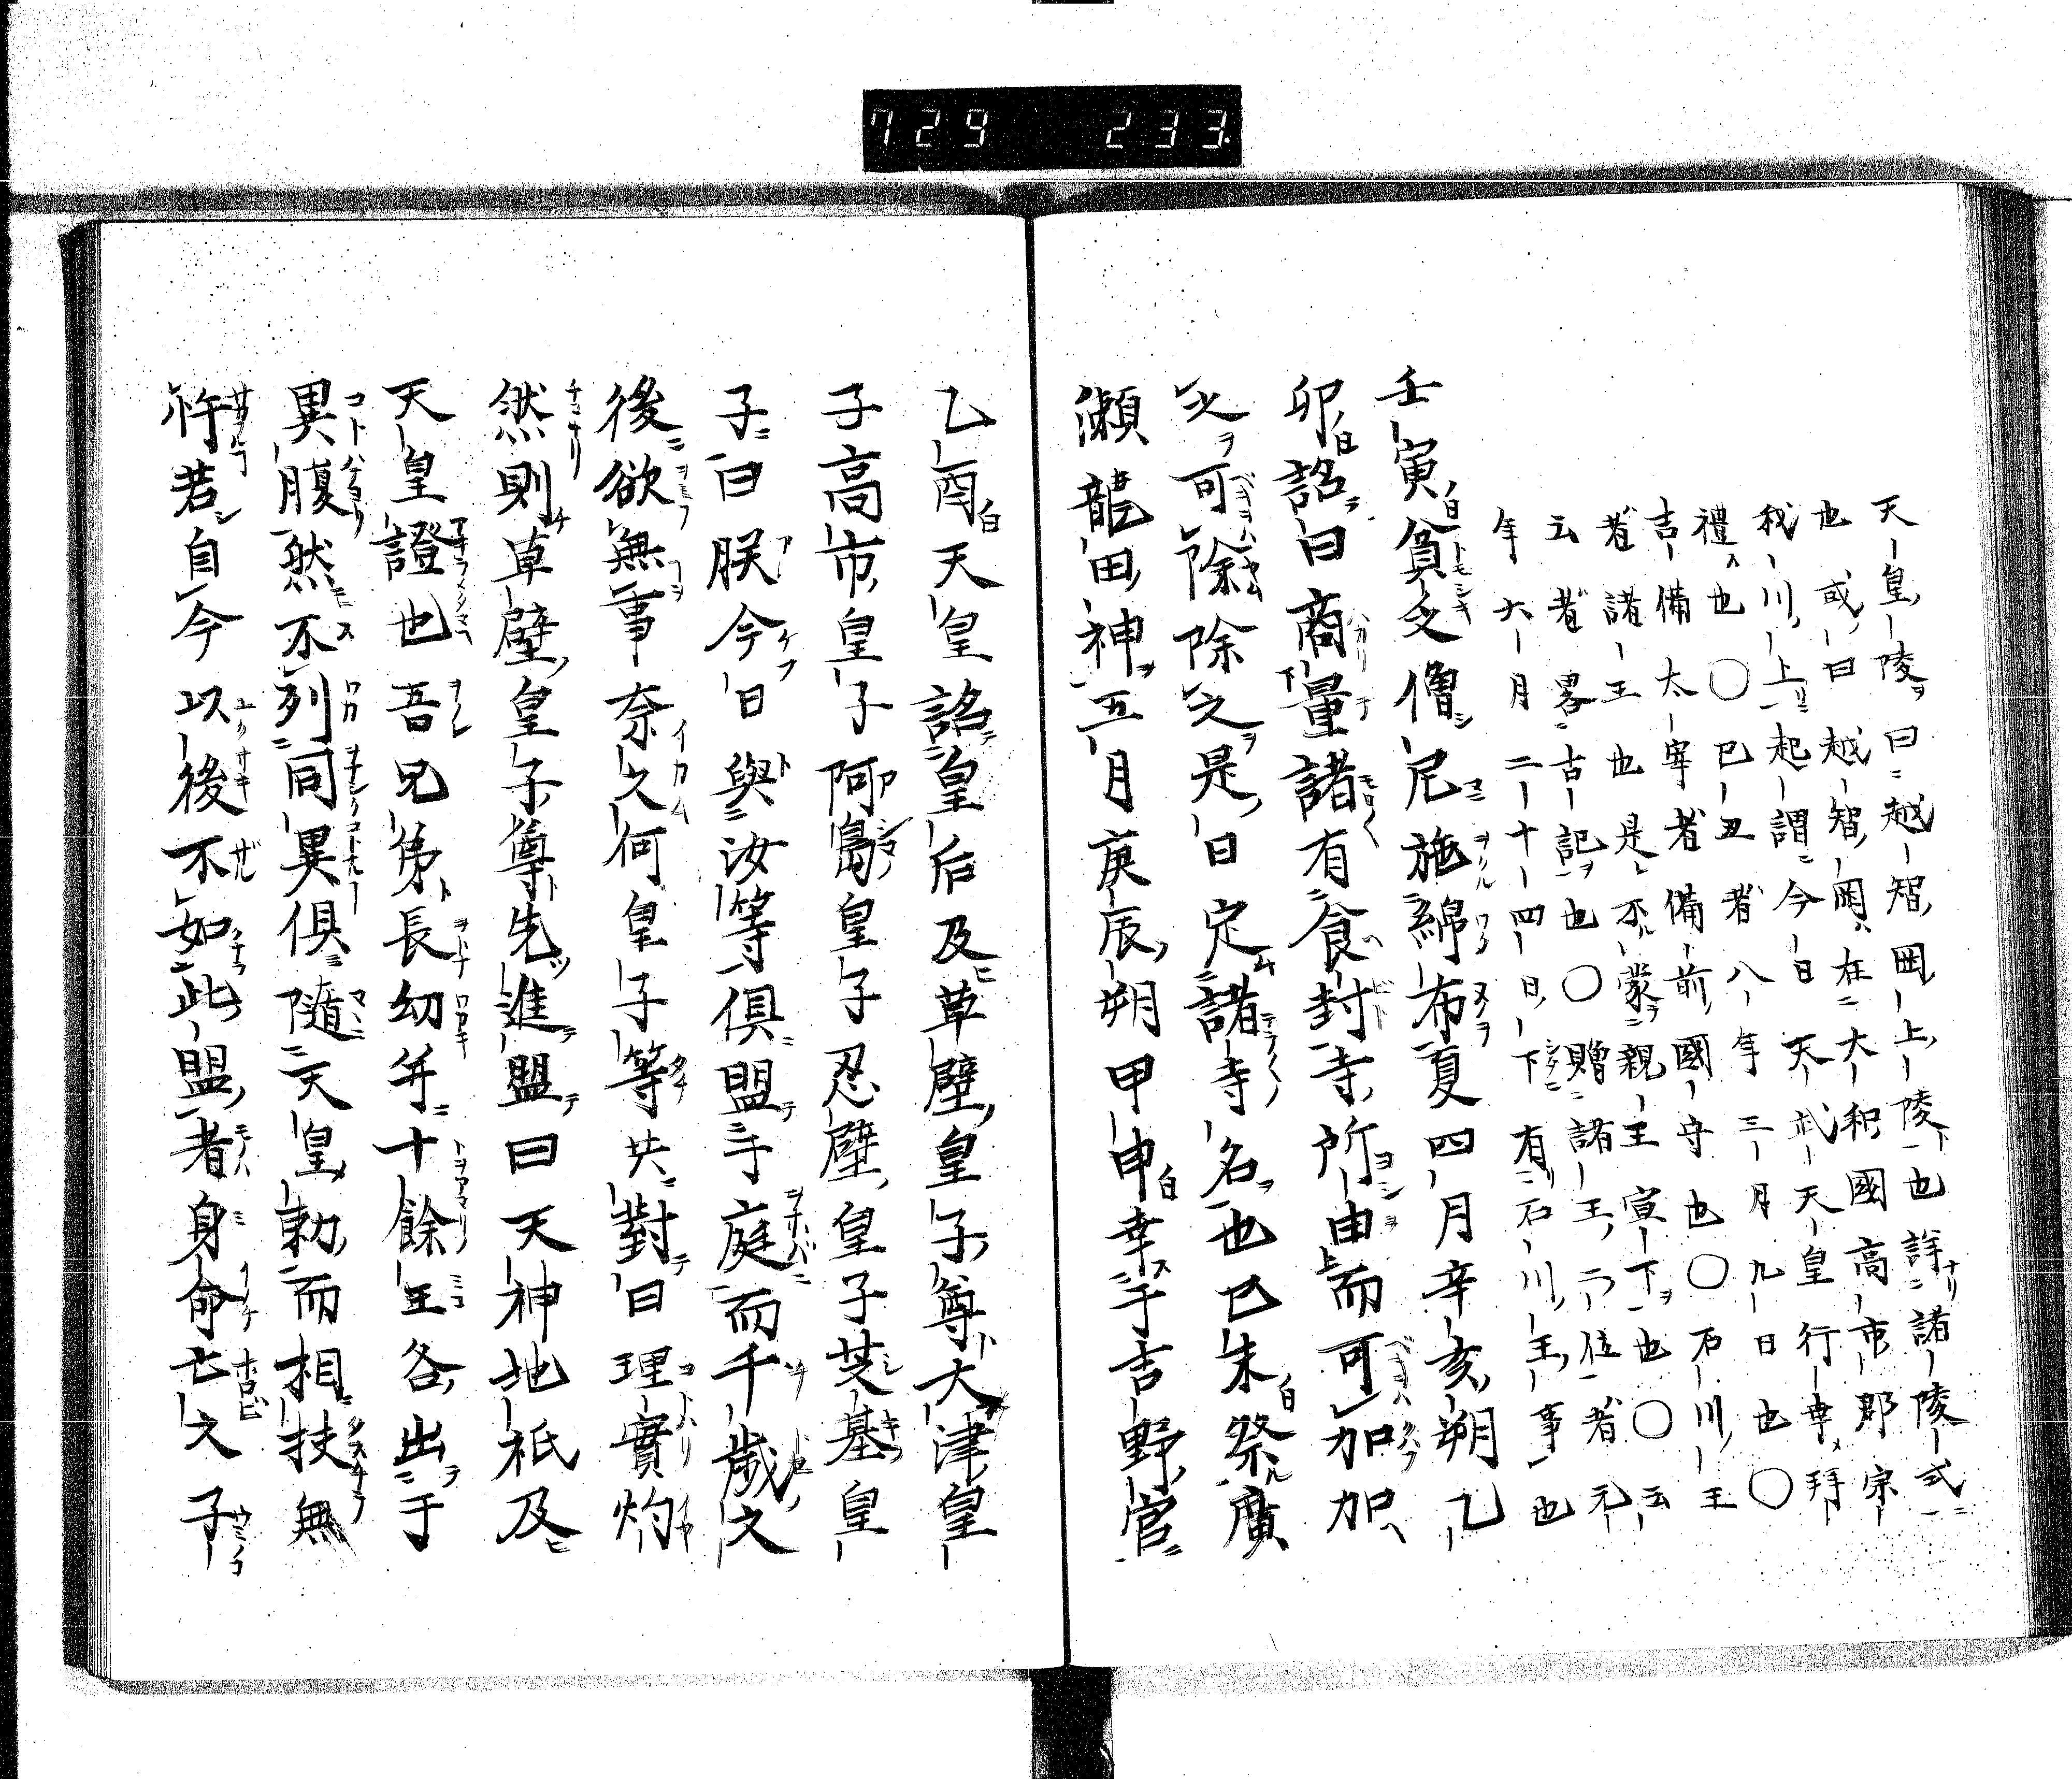 729 233
天皇陵曰越智岡上陵也詳諸陵式
也或曰越智岡在大和國高市郡宗
我川上起謂今日天武天皇行幸拜
禮也〇巳丑者八年三月九日也〇
吉備太宰者備前國守也〇石川王
者諸王也是不蒙親王宣下也〇云
云者畧古記也〇贈諸王二位者元
年六月二十四日下有石川王事也
壬寅貧乏僧尼施綿布夏四月辛亥朔乙
卯詔曰商量諸有食封寺所由而可加加
之可除除之是日定諸寺名也巳未祭廣
瀬龍田神五月庚辰朔甲申幸于吉野宮
乙酉天皇詔皇后及草壁皇子尊大津皇
子高市皇子阿嶌皇子忍壁皇子芝基皇
子曰朕今日與汝等俱盟于庭而千歳之
後欲無事奈之何皇子等共對曰理實灼
然則草壁皇子尊先進盟曰天神地祇及
天皇證也吾兄弟長幼并十餘王各出于
異腹然不列同異俱隨天皇勅而相扶無
忤若自今以後不如此盟者身命亡之子